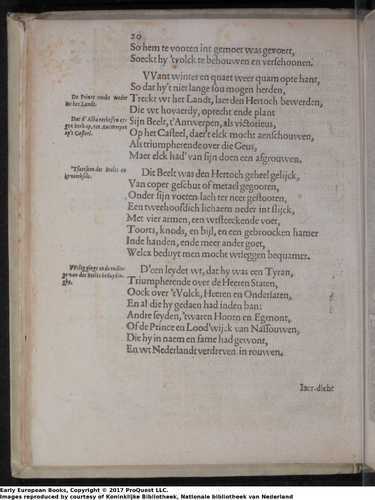 20
So hem te vooren int gemoet was gevoert,
Soeckt hy 'tvolck te behouwen en verschoonen.
VVant winter en quaet weer quam opte hant,
So dat hy't niet lange sou mogen herden,
De Prince ruckt weder wt het Landt.
Treckt wt het Landt, laet den Hertoch bewerden,
Die wt hovaerdy, oprecht ende plant
Sijn Beelt, t'Antwerpen, als victorieus,
Op het Casteel, daer't elck mocht aenschouwen,
Als triumpherende over die Geus,
Maer elck had' van sijn doen een afgrouwen.
Dit Beelt was den Hertoch geheel gelijck,
Van coper geschut of metael gegooten,
Onder sijn voeten lach ter neer gestooten,
Een tweehoofdich lichaem neder int slijck,
Met vier armen, een wtsteeckende voet,
Toorts, knods, en bijl, en een gebroocken hamer
Inde handen, ende meer ander goet,
Welcx beduyt men mocht wtleggen bequamer.
D'een leydet wt, dat hy was een Tyran,
Triumpherende over de Heeren Staten,
Oock over 'tVolck, Heeren en Ondersaten,
En al die hy gedaen had inden ban:
Andre seyden, 'twaren Hoorn en Egmont,
Of de Prince en Lood'wijck van Nassouwen,
Die hy in naem en fame had gewont,
En wt Nederlandt verdreven in rouwen.
Iaer-dicht
Early European Books, Copyright © 2017 ProQuest LLC.
Images reproduced by courtesy of Koninklijke Bibliotheek, Nationale bibliotheek van Nederland